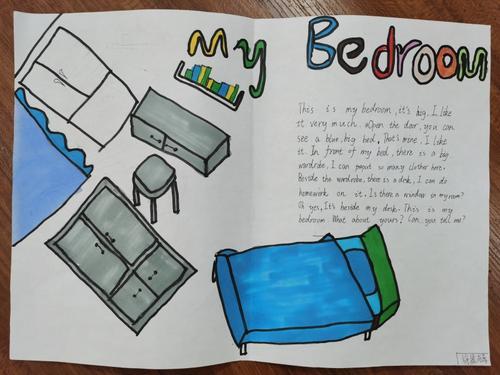 My Bedroom
This is my bedroom, it's big. I like
it very much. Open the door, you can
see a blue, big bed, That's mine. I like
it. In front of my bed, there is a big
wardrobe, I can put so many clothes here.
Beside the wardrobe, there is a desk, I can do
homework on it. Is there a window in my room?
Oh yes, It's beside my desk. This is my
bedroom. What about yours? Can you tell me?